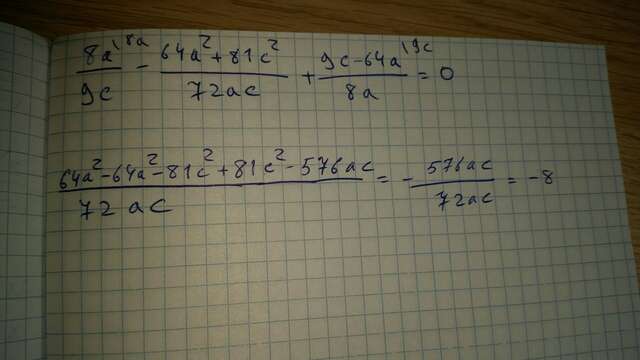 8a\8a / 9c - 64a² + 81c² / 72ac + 9c - 64a\9c / 8a = 0
64a² - 64a² - 81c² + 81c² - 576ac / 72ac = - 576ac / 72ac = -8